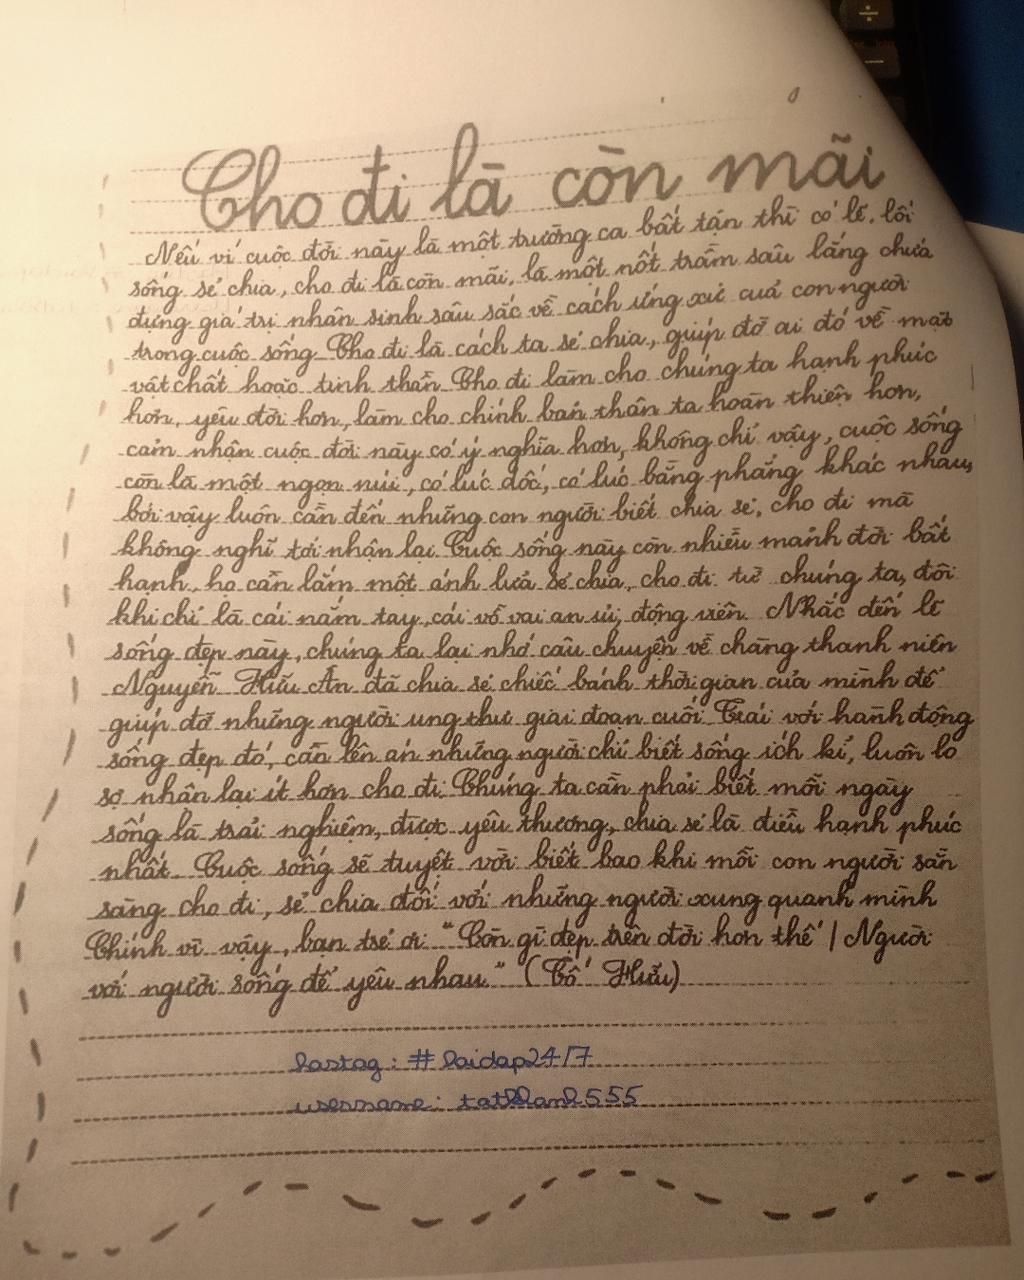 Cho đi là còn mãi
Nếu ví cuộc đời này là một trường ca bất tận thì có lẽ, lối
sống sẻ chia, cho đi là còn mãi, là một nốt trầm sâu lắng chứa
đựng giá trị nhân sinh sâu sắc về cách ứng xử của con người
trong cuộc sống. Cho đi là cách ta sẻ chia, giúp đỡ ai đó về mặt
vật chất hoặc tinh thần. Cho đi làm cho chúng ta hạnh phúc
hơn, yêu đời hơn, làm cho chính bản thân ta hoàn thiện hơn,
cảm nhận cuộc đời này có ý nghĩa hơn, không chỉ vậy, cuộc sống
còn là một ngọn núi, có lúc dốc, có lúc bằng phẳng khác nhau,
bởi vậy luôn cần đến những con người biết chia sẻ, cho đi mà
không nghĩ tới nhận lại. Cuộc sống này còn nhiều mảnh đời bất
hạnh, họ cần lắm một ánh lửa sẻ chia, cho đi từ chúng ta, đôi
khi chỉ là cái nắm tay, cái vỗ vai an ủi, động viên. Nhắc đến lẽ
sống đẹp này, chúng ta lại nhớ câu chuyện về chàng thanh niên
Nguyễn Hữu Ân đã chia sẻ chiếc bánh thời gian của mình để
giúp đỡ những người ung thư giai đoạn cuối. Trái với hành động
sống đẹp đó, cần lên án những người chỉ biết sống ích kỉ, luôn lo
sợ nhận lại ít hơn cho đi. Chúng ta cần phải biết mỗi ngày
sống là trải nghiệm, được yêu thương, chia sẻ là điều hạnh phúc
nhất. Cuộc sống sẽ tuyệt vời biết bao khi mỗi con người sẵn
sàng cho đi, sẻ chia đối với những người xung quanh mình
Chính vì vậy, bạn trẻ ơi "Còn gì đẹp trên đời hơn thế / Người
với người sống để yêu nhau" (Tố Hữu)
hastag: #baidap24/7
username: tatkhanh555